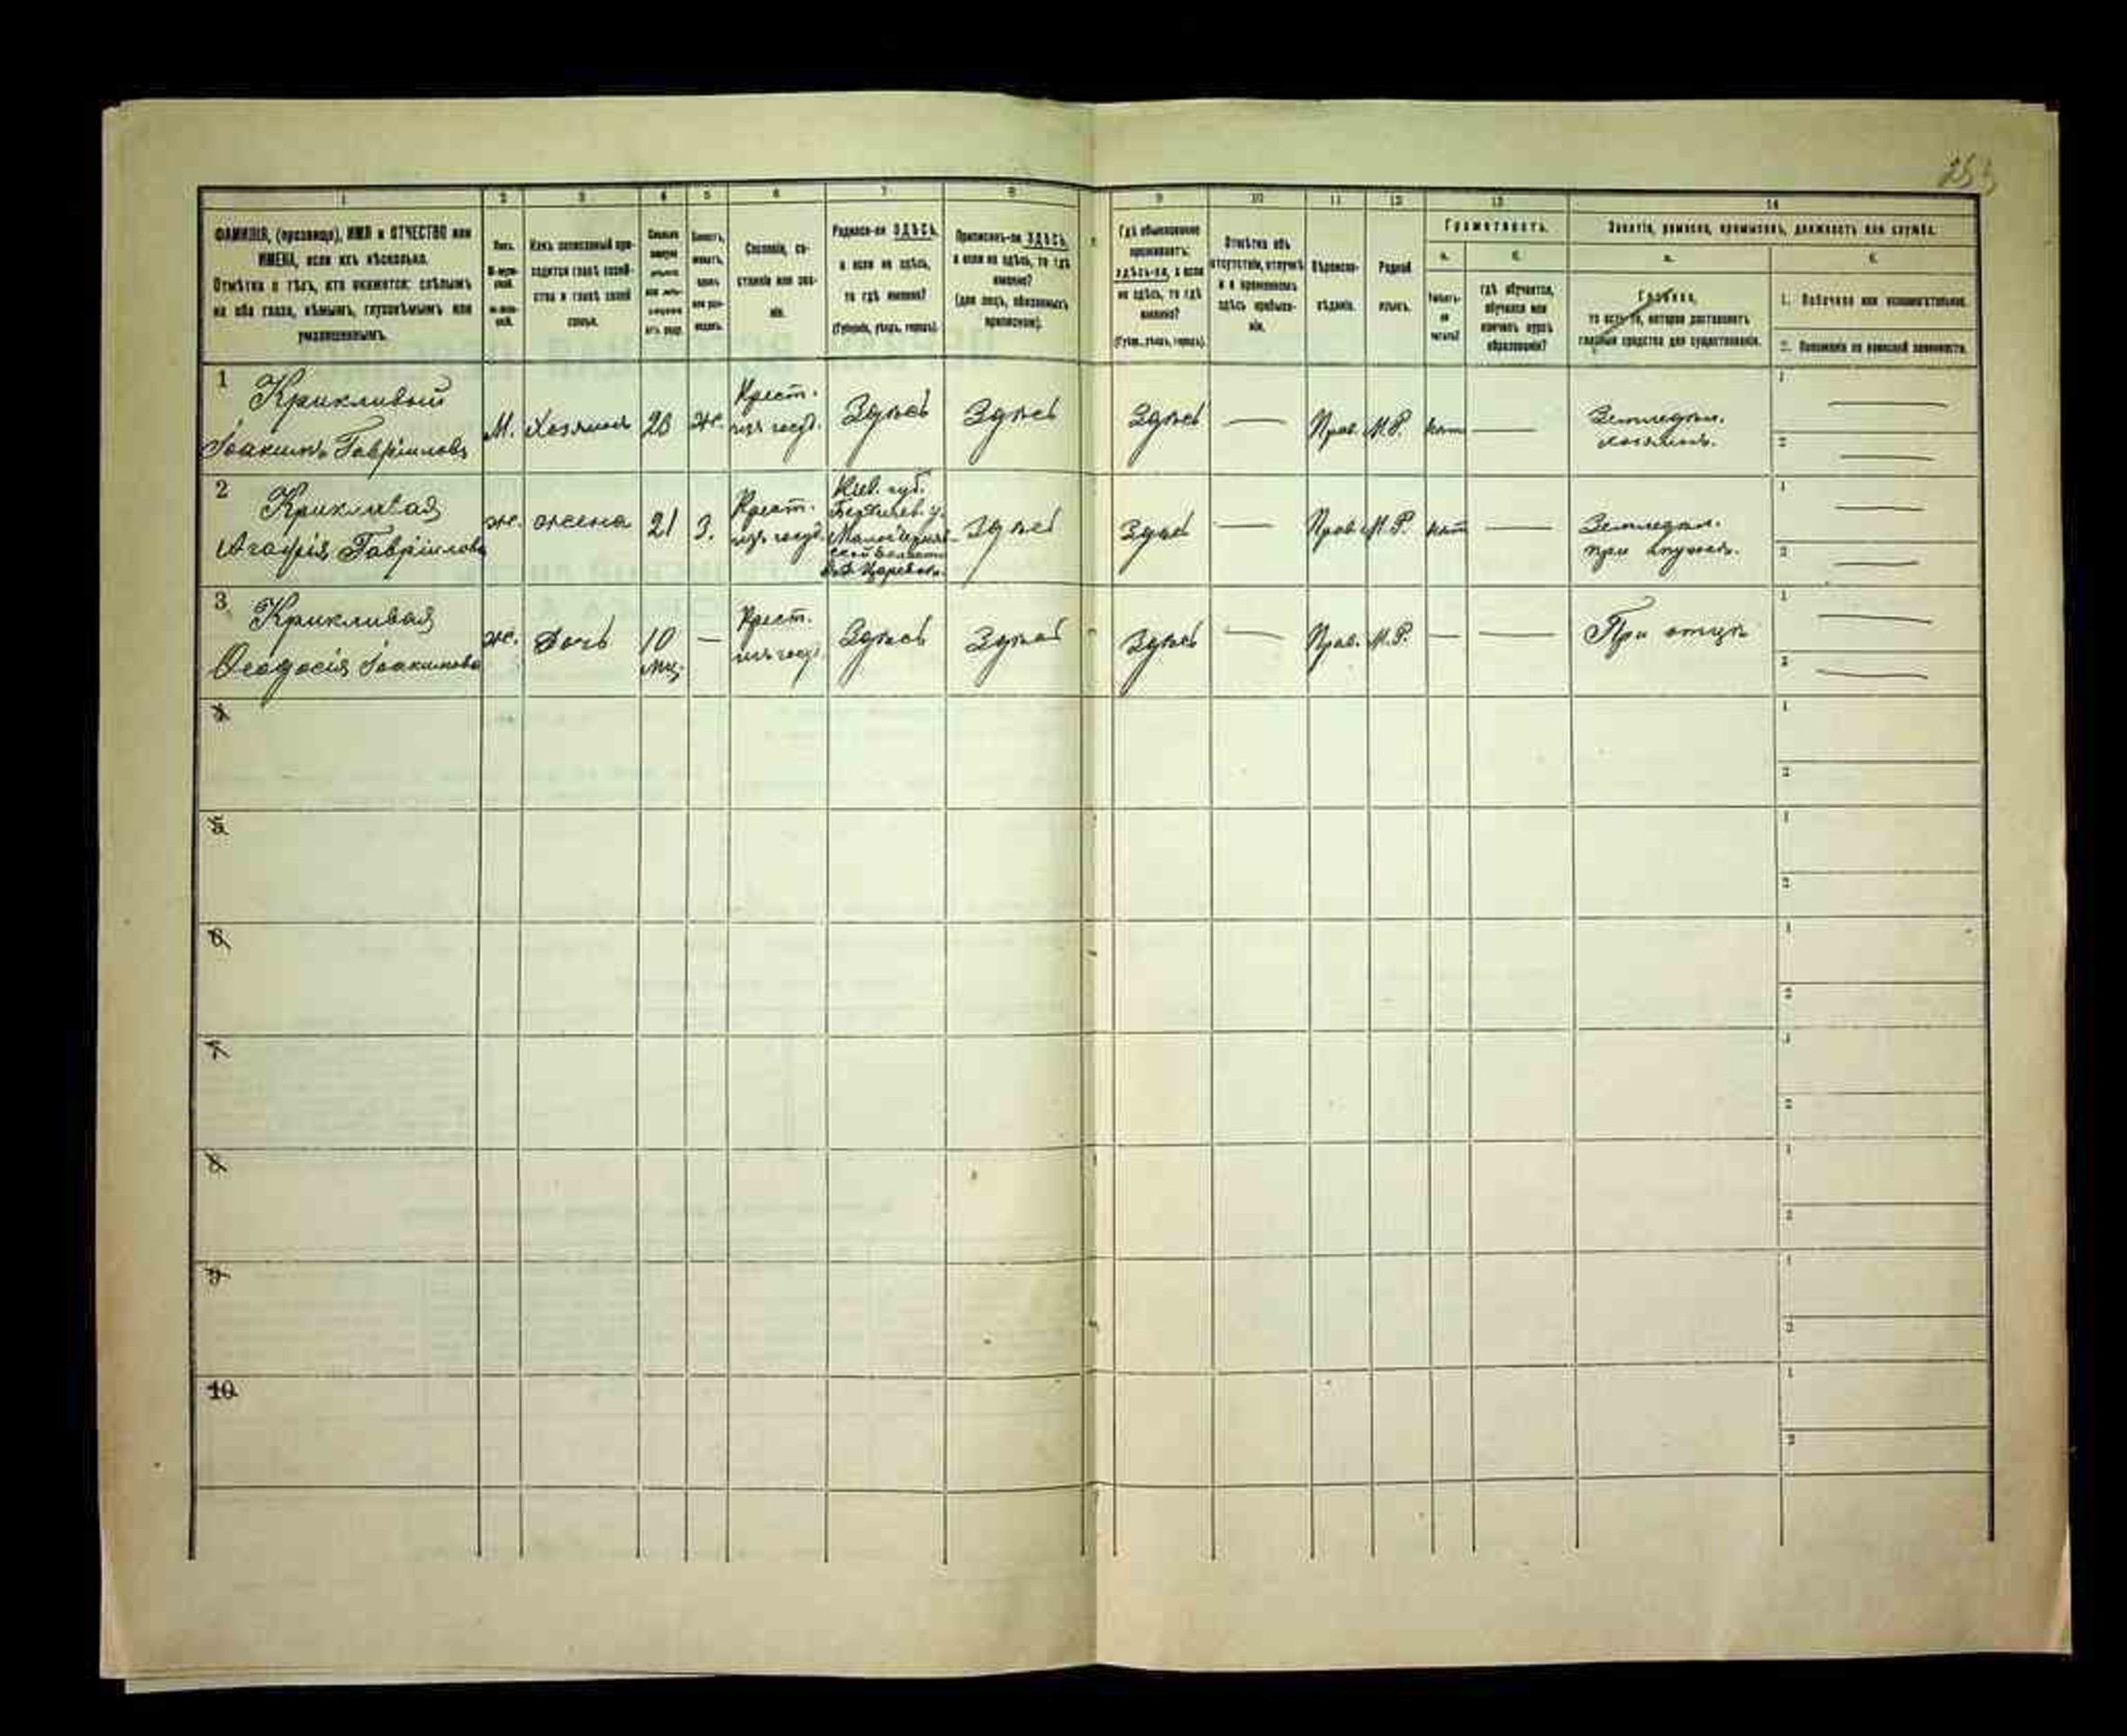 253
1
2
3
4
5
6
7
8
9
10
11
12
13
14
ФАМИЛІЯ, (прозвище), ИМЯ и ОТЧЕСТВО или
ИМЕНА, если ихъ нѣсколько.
Отмѣтка о тѣхъ, кто окажется: слѣпымъ
на оба глаза, нѣмымъ, глухонѣмымъ или
умалишеннымъ.
Полъ.
Какъ записанный при-
ходится главѣ хозяй-
ства и главѣ своей
семьи.
Сословіе, со-
стояніе или зва-
ніе.
Родился-ли ЗДѢСЬ,
а если не здѣсь,
то гдѣ именно?
(Губернія, уѣздъ, городъ).
Приписанъ-ли ЗДѢСЬ,
а если не здѣсь, то гдѣ
именно?
(для лицъ, обязанныхъ
припискою).
Гдѣ обыкновенно
проживаетъ:
здѣсь-ли, а если
не здѣсь, то гдѣ
именно?
(Губ., уѣздъ, городъ).
Отмѣтка объ
отсутствіи, отлучкѣ
и о временномъ
здѣсь пребыва-
ніи.
Вѣроиспо-
вѣданіе.
Родной
языкъ.
Грамотность.
а.
б.
Умѣетъ-
ли
читать?
гдѣ обучается,
обучался или
кончилъ курсъ
образованія?
Занятіе, ремесло, промыселъ, должность или служба.
а.
б.
Главное,
то есть то, которое доставляетъ
главныя средства для существованія.
1. Побочное или вспомогательное.
2. Положеніе по воинской повинности.
1
Крикливый
Іоакимъ Гавріиловъ
М.
Хозяинъ
23
ж.
Крест.
изъ госуд.
Здѣсь
Здѣсь
Здѣсь
—
Прав.
М.Р.
нѣт
—
Земледѣл.
хозяинъ.
1 —
2 —
2
Крикливая
Агафія Гавріилова
ж.
жена
21
З.
Крест.
изъ госуд.
Кіев. губ.
Бердичев. у.
Здѣсь
Здѣсь
—
Прав.
М.Р.
нѣт
—
Земледѣл.
при мужѣ.
1 —
2 —
3
Крикливая
Ѳеодосія Іоакимова
ж.
Дочь
10
мц.
—
Крест.
изъ госуд.
Здѣсь
Здѣсь
Здѣсь
—
Прав.
М.Р.
—
—
При отцѣ
1 —
2 —
4
1
2
5
1
2
6
1
2
7
1
2
8
1
2
9
1
2
10
1
2